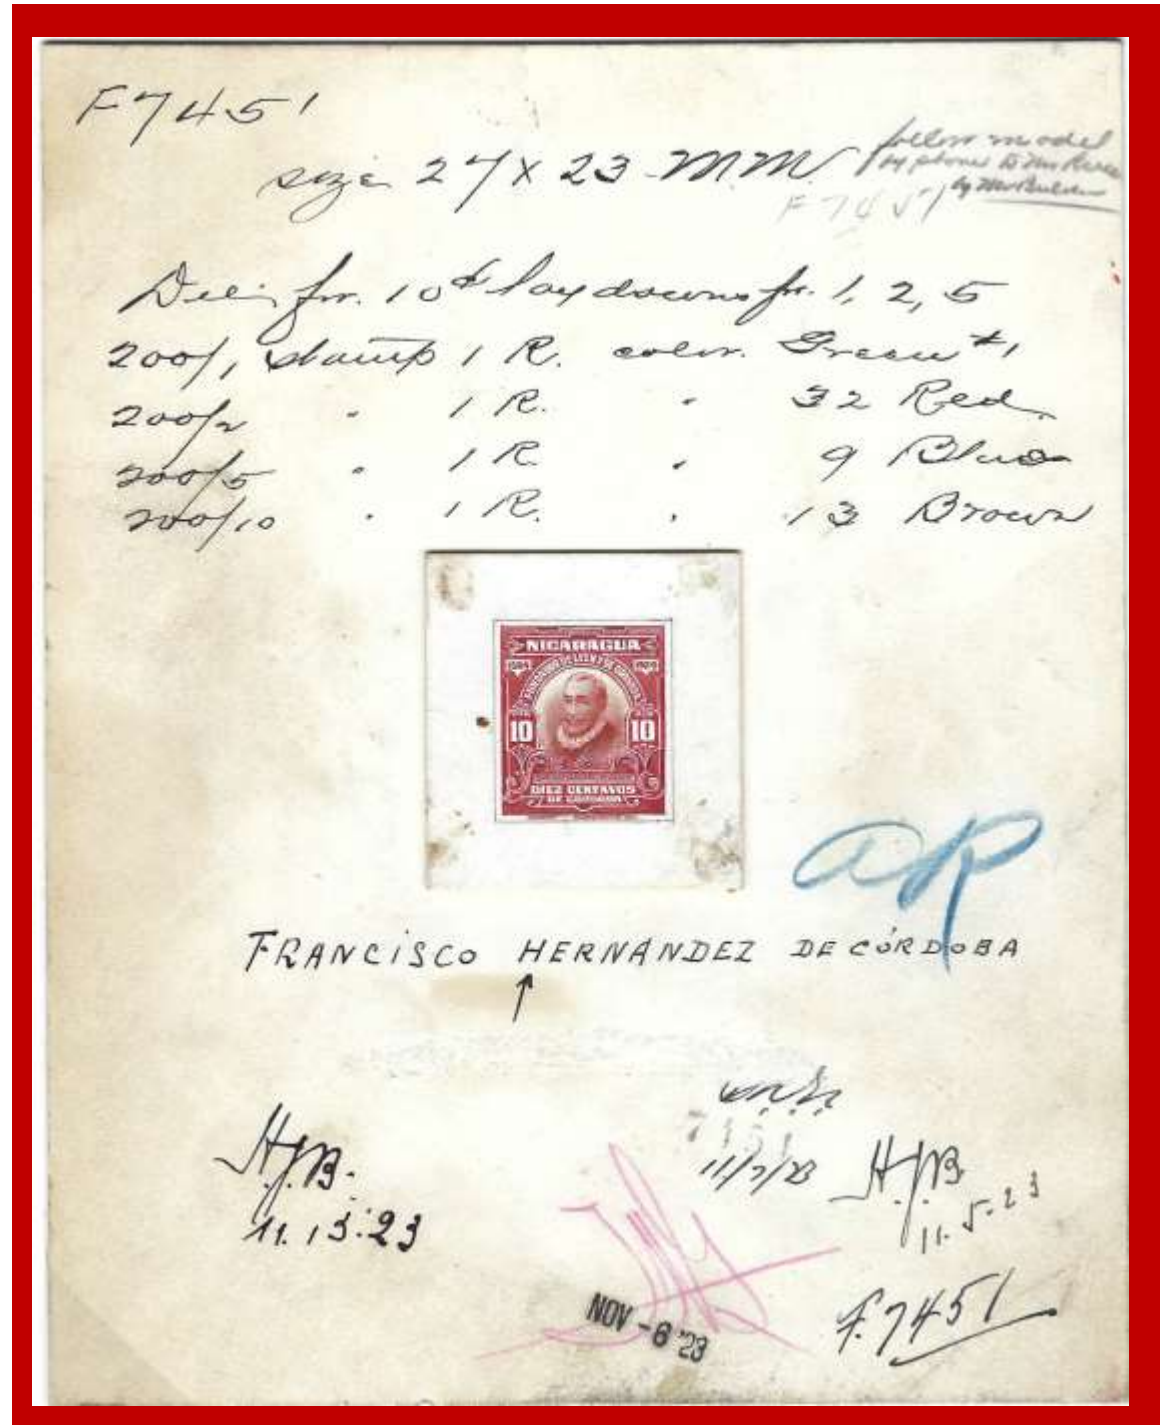 F7451
size 27 x 23 M.M.
follow model
by phone to Mr
by Mr
F 7451
Die for 10¢ laydowns for 1, 2, 5
200/1 stamp 1 R. color. Green #1
200/2 " 1 R. " 32 Red
200/5 " 1 R " 9 Blue
200/10 " 1 R. " 13 Brown
NICARAGUA
1524 1924
FUNDACION DE LEON Y DE GRANADA
10 10
DIEZ CENTAVOS
DE CORDOBA
AR
FRANCISCO HERNÁNDEZ DE CÓRDOBA
↑
7451
H.J.B.
11.13.23
H.J.B
11.5.23
NOV -6 '23
F.7451